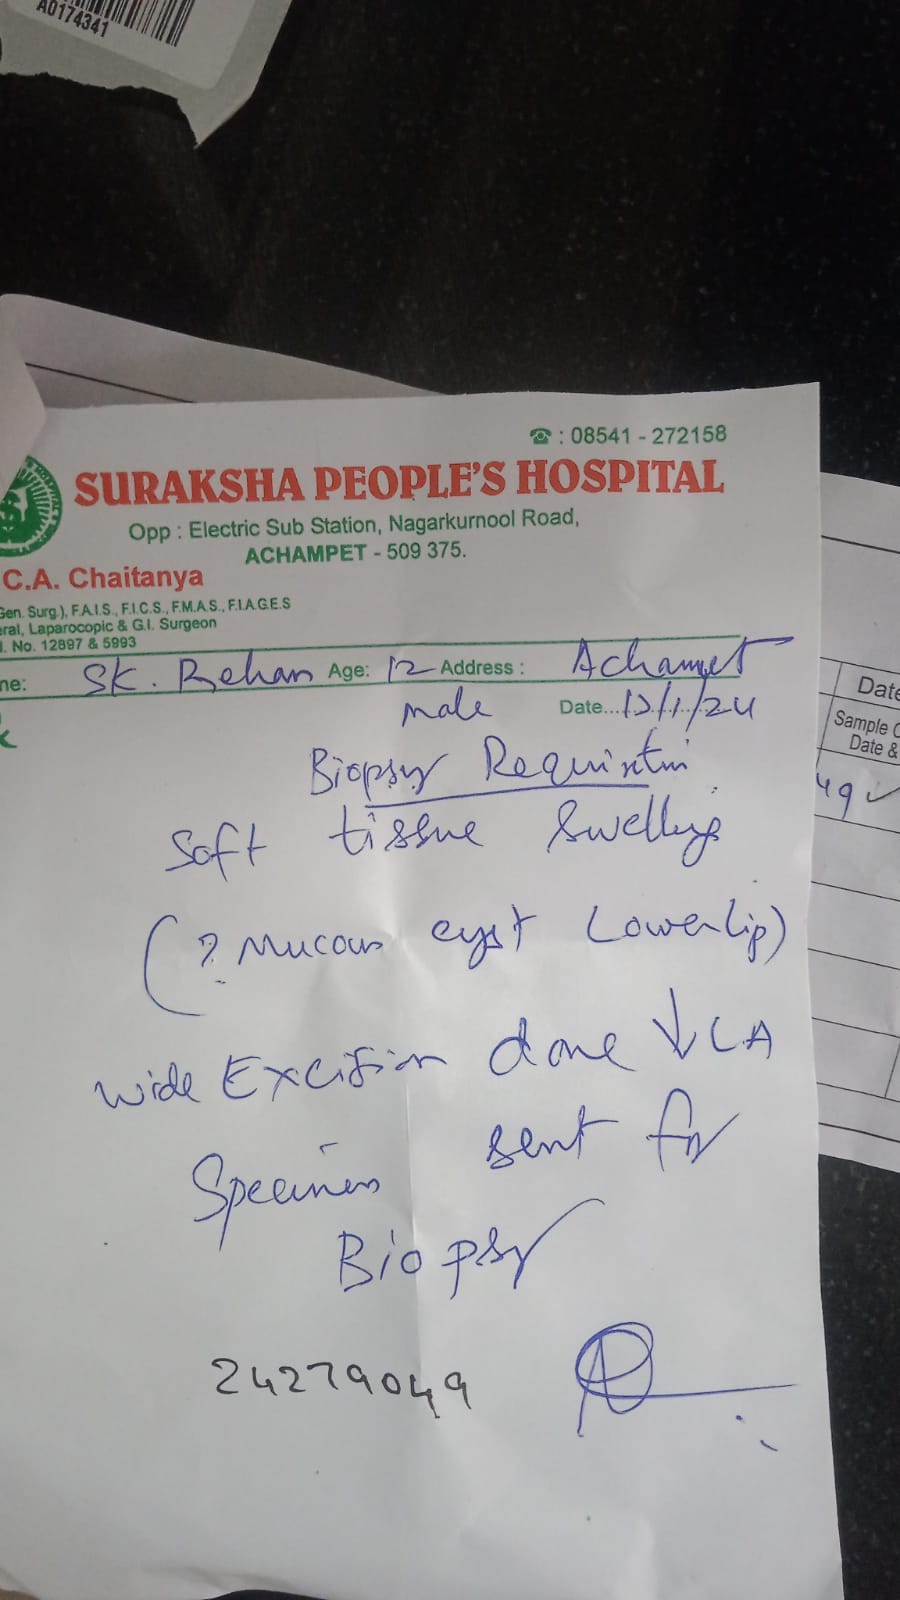 A0174341
☎ : 08541 - 272158
SURAKSHA PEOPLE'S HOSPITAL
Opp : Electric Sub Station, Nagarkurnool Road,
ACHAMPET - 509 375.
C.A. Chaitanya
Gen. Surg.), F.A.I.S., F.I.C.S., F.M.A.S., F.I.A.G.E.S
eral, Laparocopic & G.I. Surgeon
. No. 12897 & 5993
me: SK. Rehan Age: 12 Address : Achampet
male Date... /1/24
Biopsy Requisition
Soft tissue Swelling
(? Mucous cyst Lowerlip)
Wide Excision done ↓ LA
Specimen sent for
Biopsy
24279049
Date
Sample C
Date &
49